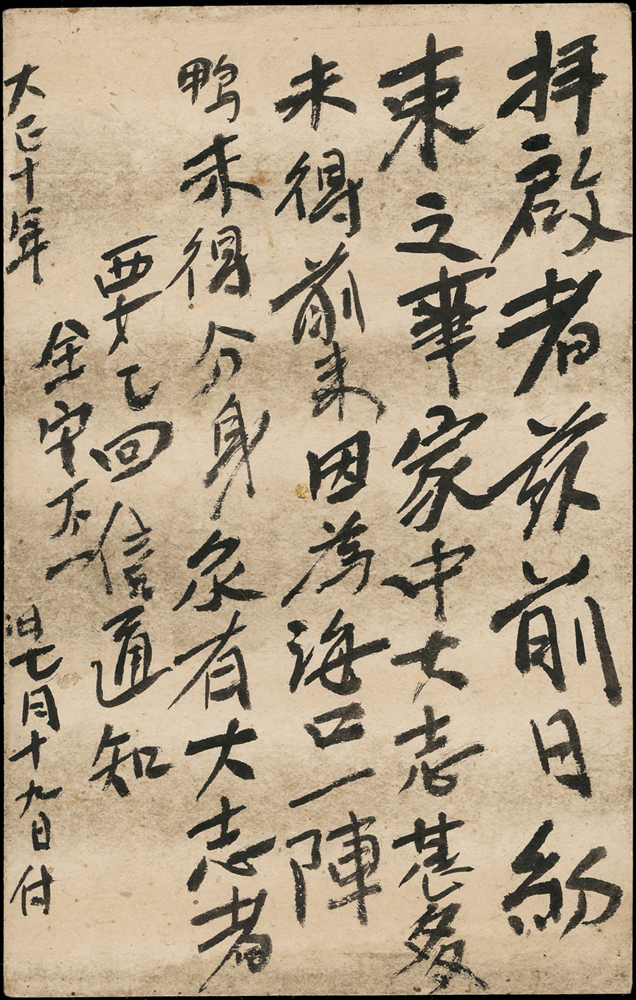 拝啟者茲前日約
東之華家中大志甚多
未得前来因為海口一陣
鴨未得分身尔有大志者
要乜回信通知
金安不一
大正十年 旧七月十九日付